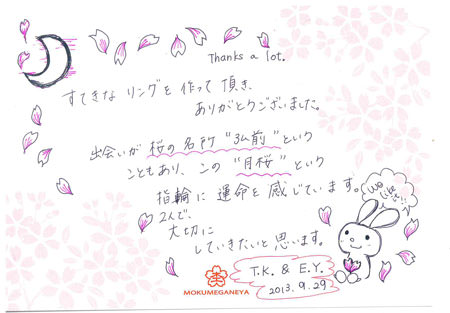 Thanks a lot.
すてきな リングを 作って 頂き、
ありがとうございました。
出会いが 桜の名所 "弘前" という
こともあり、この "月桜" という
指輪に 運命を 感じています。
2人で、
大切に
していきたいと 思います。
We like
T.K. & E.Y.
2013.9.29
MOKUMEGANEYA